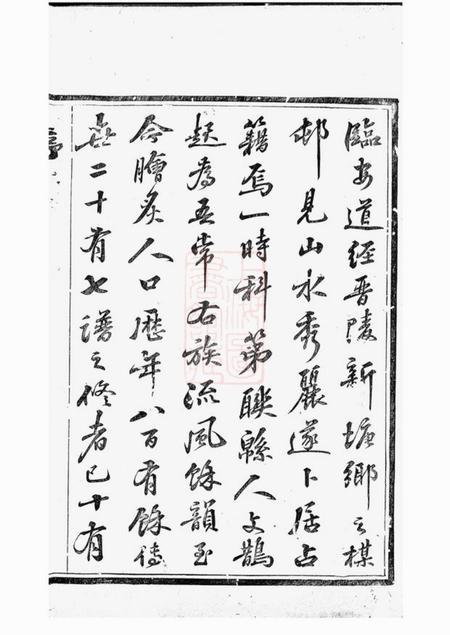 臨安道經晋陵新塘鄉之楳
邨見山水秀麗遂卜居占
籍焉一時科第聯緜人文鵲
起為吾常右族流風餘韻至
今膾炙人口歷年八百有餘傳
世二十有七譜之修者已十有